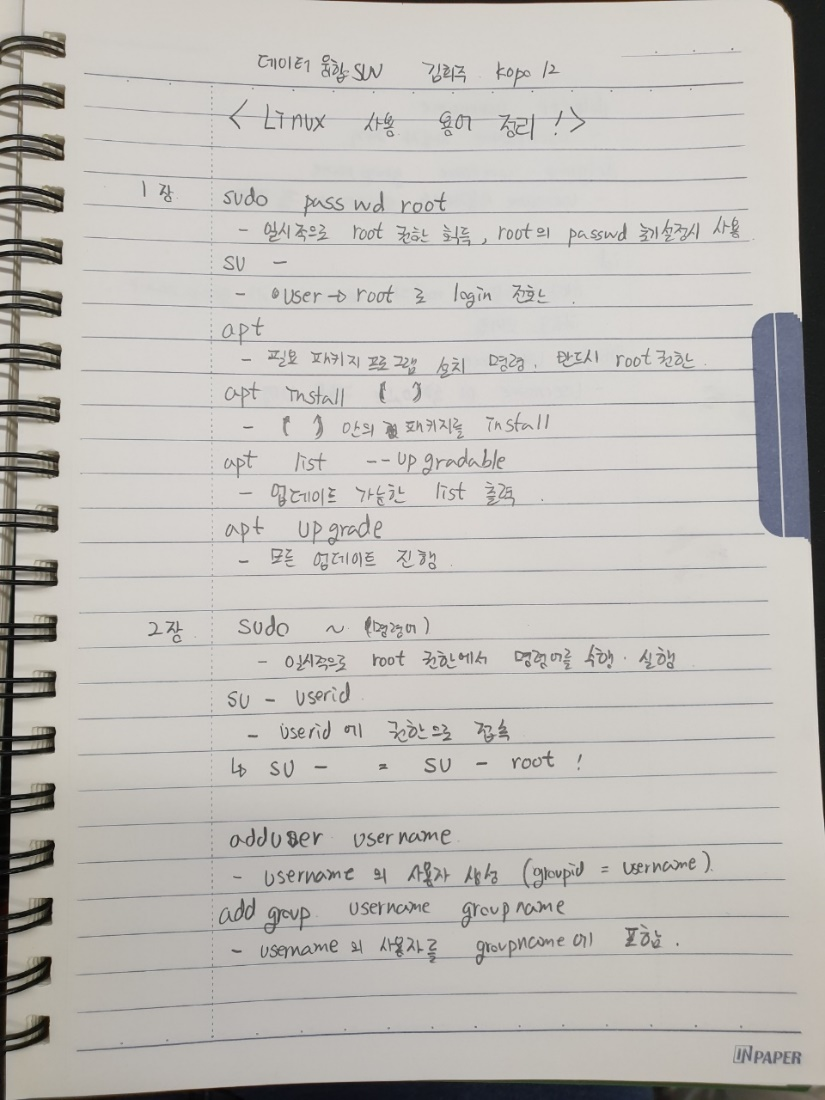 데이터 융합SW 김희주 kopo 12
< Linux 사용 용어 정리 ! >
1장 sudo passwd root
- 일시적으로 root 권한 획득, root의 passwd 초기설정시 사용
su -
- user → root 로 login 전환.
apt
- 필요 패키지 프로그램 설치 명령. 반드시 root권한.
apt install ( )
- ( ) 안의 패키지를 install
apt list --upgradable
- 업데이트 가능한 list 출력.
apt upgrade
- 모든 업데이트 진행.
2장 sudo ~ (명령어)
- 일시적으로 root 권한에서 명령어를 수행·실행
su - userid
- userid 에 권한으로 접속
↳ su - = su - root !
adduser username
- username 의 사용자 생성 (groupid = username).
add group username groupname
- username 의 사용자를 groupname에 포함.
INPAPER